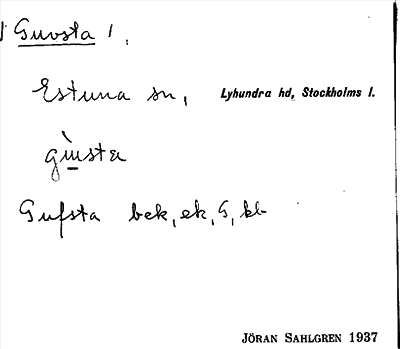 Guvsta 1.
Estuna sn, Lyhundra hd, Stockholms l.
Gufsta bek, ek, G, kb
JÖRAN SAHLGREN 1937